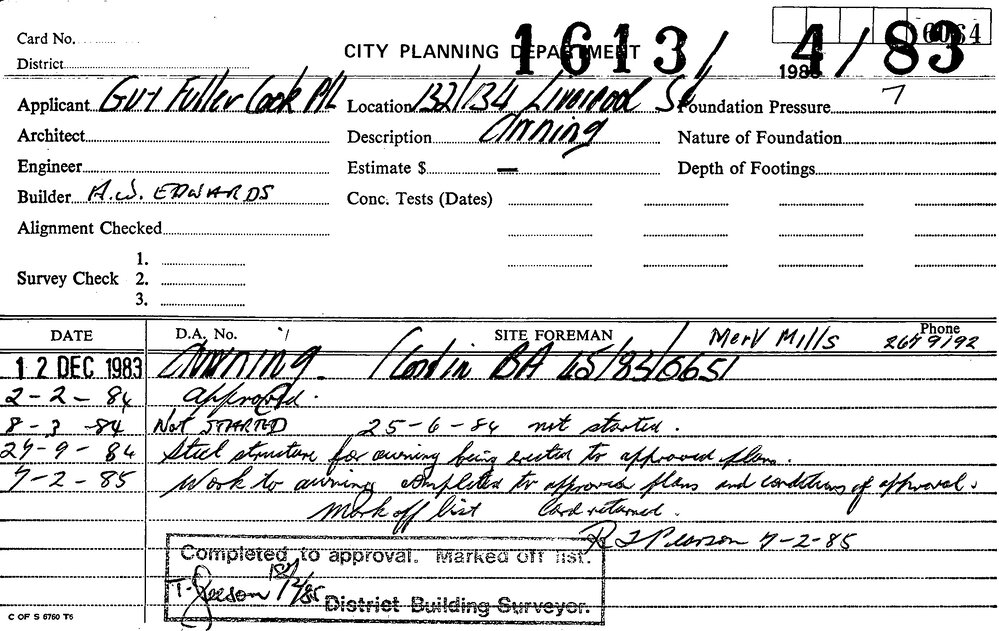 Card No.
CITY PLANNING DEPARTMENT 1613/ 4/83
6064
District
198
Applicant Guy Fuller Cook P/L Location 132/134 Liverpool St Foundation Pressure 7
Architect Description Awning Nature of Foundation
Engineer Estimate $ — Depth of Footings
Builder A.W. EDWARDS Conc. Tests (Dates)
Alignment Checked
1.
Survey Check 2.
3.
DATE D.A. No. SITE FOREMAN Merv Mills Phone 267 9192
12 DEC 1983 Awning. (Cond in BA 45/83/0651
2-2-84 approved.
8-3-84 Not STARTED 25-6-84 not started.
27-9-84 Steel structure for awning being erected to approved plans.
7-2-85 Work to awning completed to approved plans and conditions of approval.
Mark off list Card returned.
Pearson 7-2-85
Completed to approval. Marked off list.
T. 12/85 District Building Surveyor.
C OF S 6760 T5